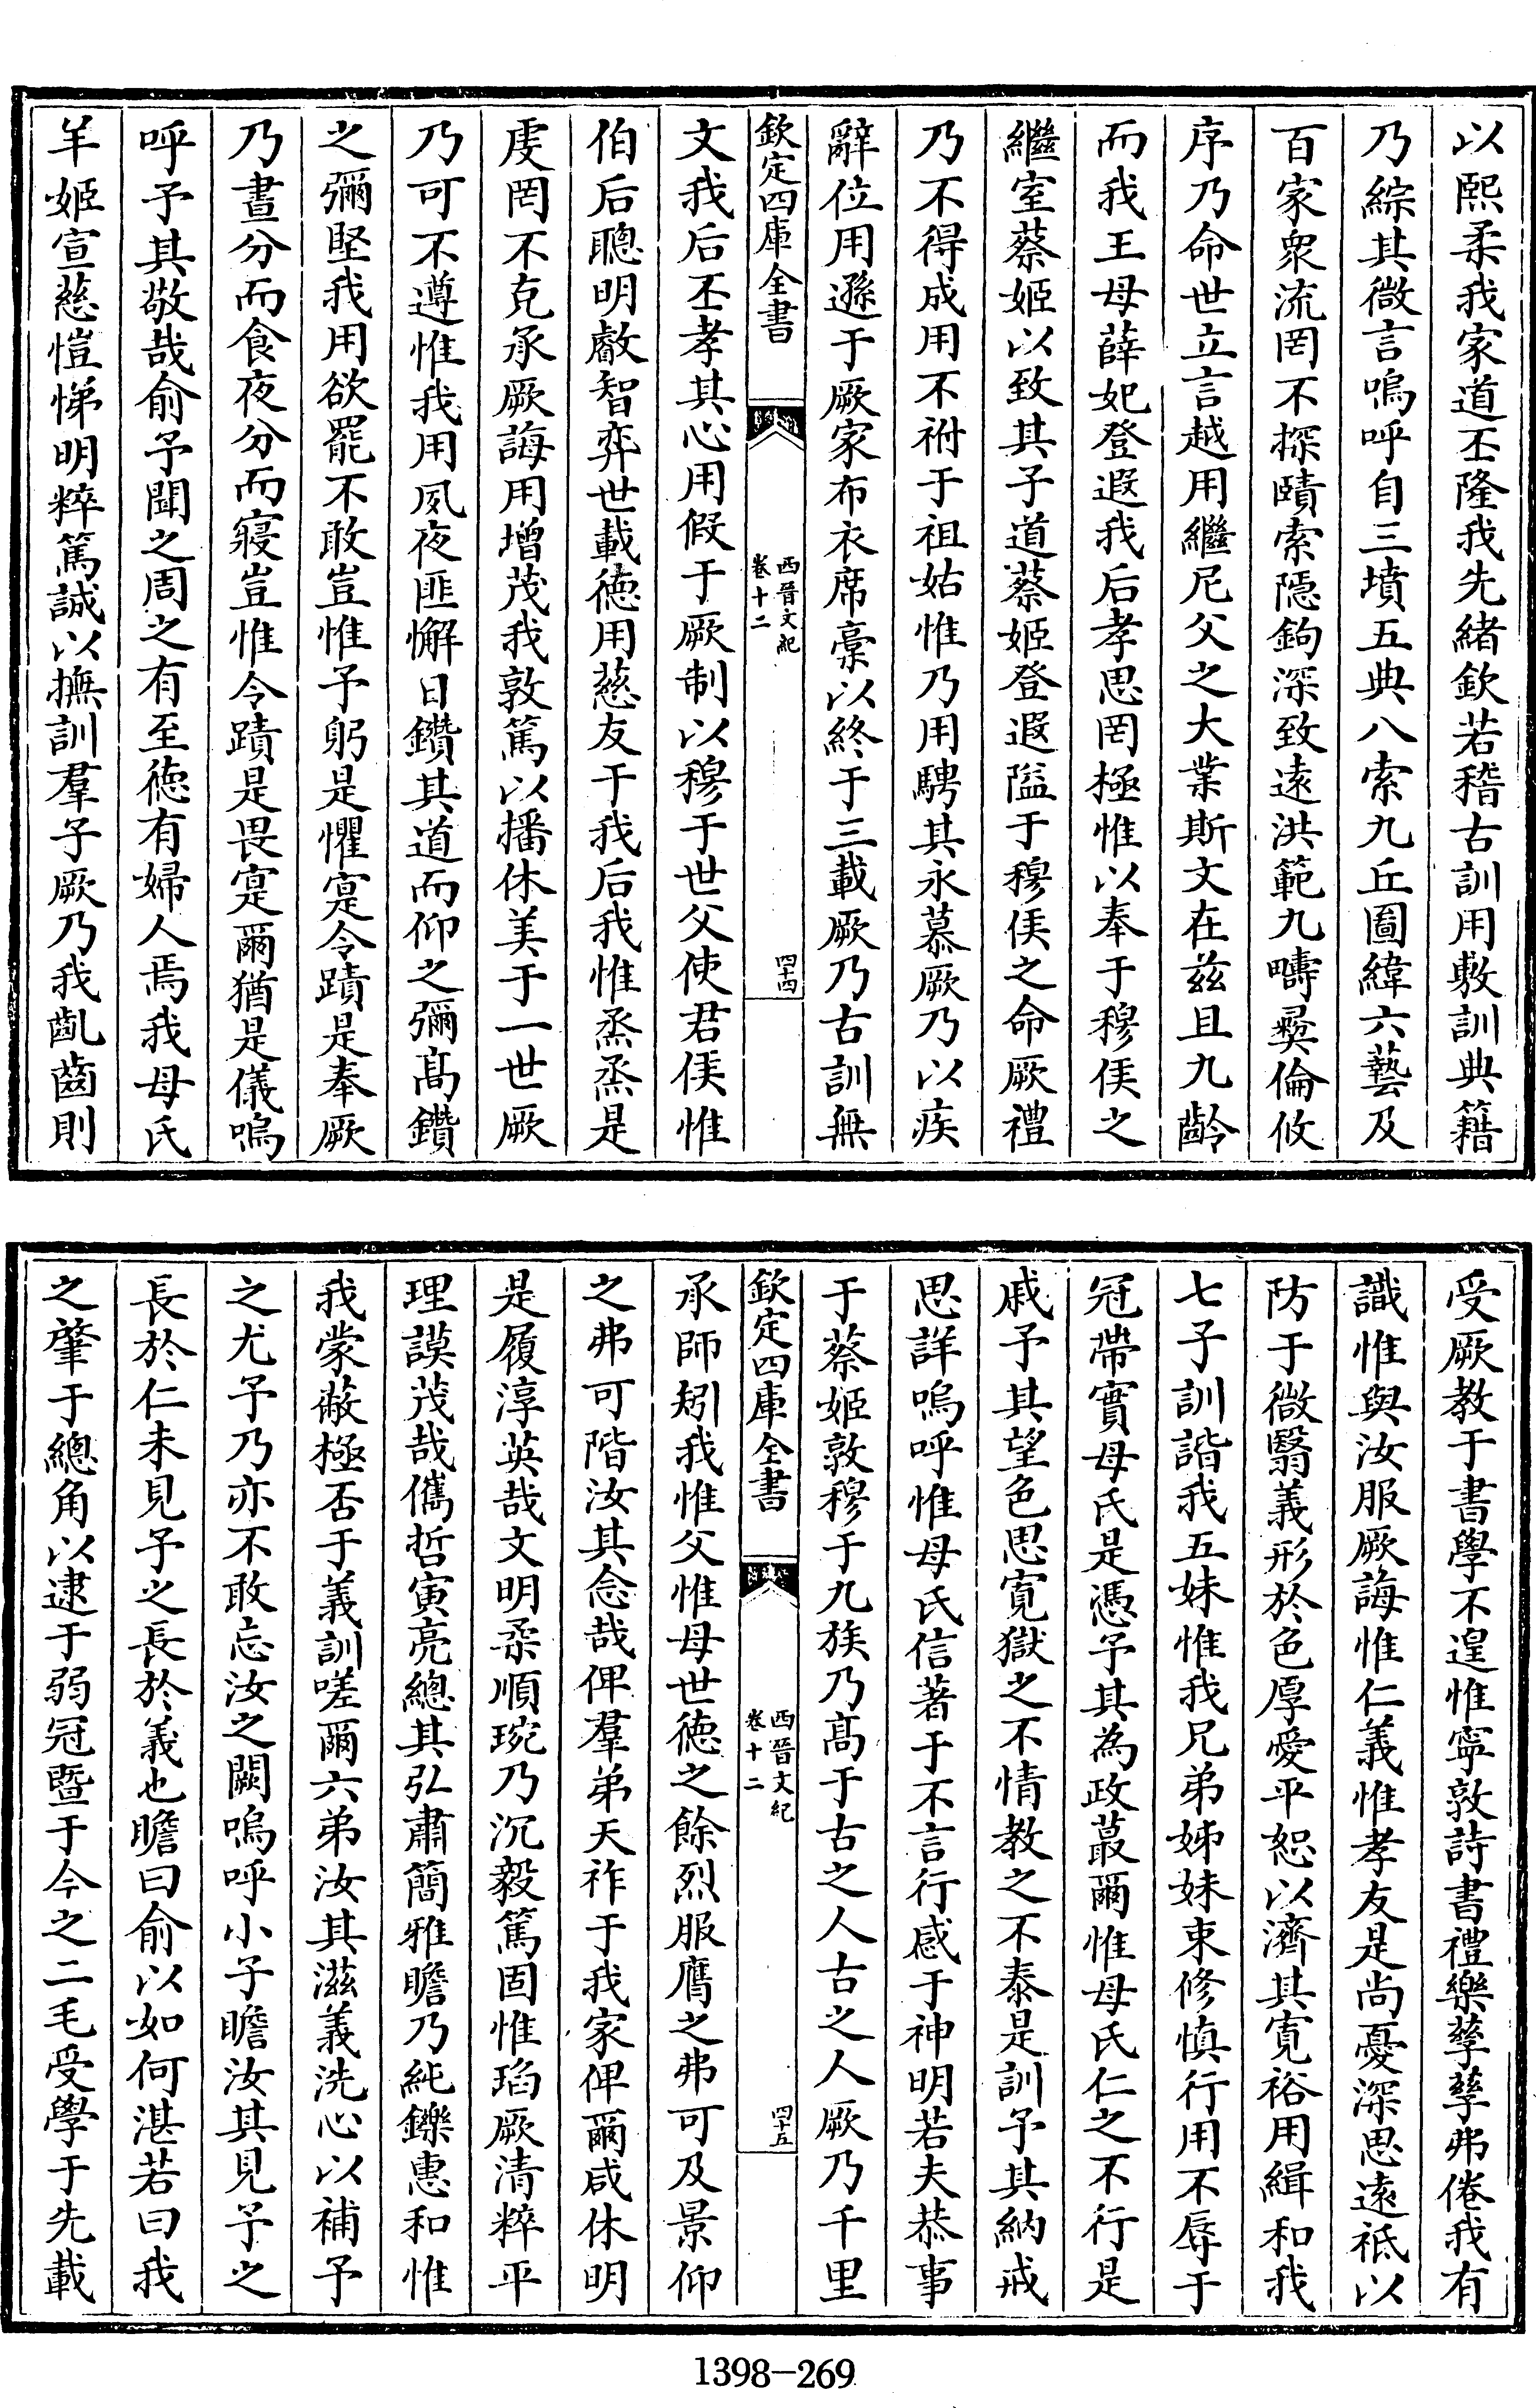 以熙柔我家道丕隆我先緒欽若稽古訓用敷訓典籍
乃綜其微言嗚呼自三墳五典八索九丘圖緯六藝及
百家衆流罔不探賾索隱鉤深致遠洪範九疇彛倫攸
序乃命世立言越用繼尼父之大業斯文在茲且九齡
而我王母薛妃登遐我后孝思罔極惟以奉于穆侯之
繼室蔡姬以致其子道蔡姬登遐隘于穆侯之命厥禮
乃不得成用不祔于祖姑惟乃用騁其永慕厥乃以疾
辭位用遜于厥家布衣席稾以終于三載厥乃古訓無
欽定四庫全書
西晉文紀
卷十二
四十四
文我后丕孝其心用假于厥制以穆于世父使君侯惟
伯后聰明叡智奕世載德用慈友于我后我惟烝烝是
虔罔不克承厥誨用增茂我敦篤以播休美于一世厥
乃可不遵惟我用夙夜匪懈日鑽其道而仰之彌高鑽
之彌堅我用欲罷不敢豈惟予躬是懼寔令蹟是奉厥
乃晝分而食夜分而寢豈惟令蹟是畏寔爾猶是儀嗚
呼予其敬哉俞予聞之周之有至德有婦人焉我母氏
羊姬宣慈愷悌明粹篤誠以撫訓羣子厥乃我齓齒則
受厥教于書學不遑惟寧敦詩書禮樂孳孳弗倦我有
識惟與汝服厥誨惟仁義惟孝友是尚憂深思遠祗以
防于微翳義形於色厚愛平恕以濟其寬裕用緝和我
七子訓諧我五妹惟我兄弟姊妹束修慎行用不辱于
冠帶實母氏是憑予其為政蕞爾惟母氏仁之不行是
戚予其望色思寬獄之不情教之不泰是訓予其納戒
思詳嗚呼惟母氏信著于不言行感于神明若夫恭事
于蔡姬敦穆于九族乃高于古之人古之人厥乃千里
欽定四庫全書
西晉文紀
卷十二
四十五
承師矧我惟父惟母世德之餘烈服膺之弗可及景仰
之弗可階汝其念哉俾羣弟天祚于我家俾爾咸休明
是履淳英哉文明柔順琬乃沉毅篤固惟瑫厥清粹平
理謨茂哉儁哲寅亮總其弘肅簡雅瞻乃純鑠惠和惟
我蒙蔽極否于義訓嗟爾六弟汝其滋義洗心以補予
之尤予乃亦不敢忘汝之闕嗚呼小子瞻汝其見予之
長於仁未見予之長於義也瞻曰俞以如何湛若曰我
之肇于總角以逮于弱冠暨于今之二毛受學于先載
1398-269